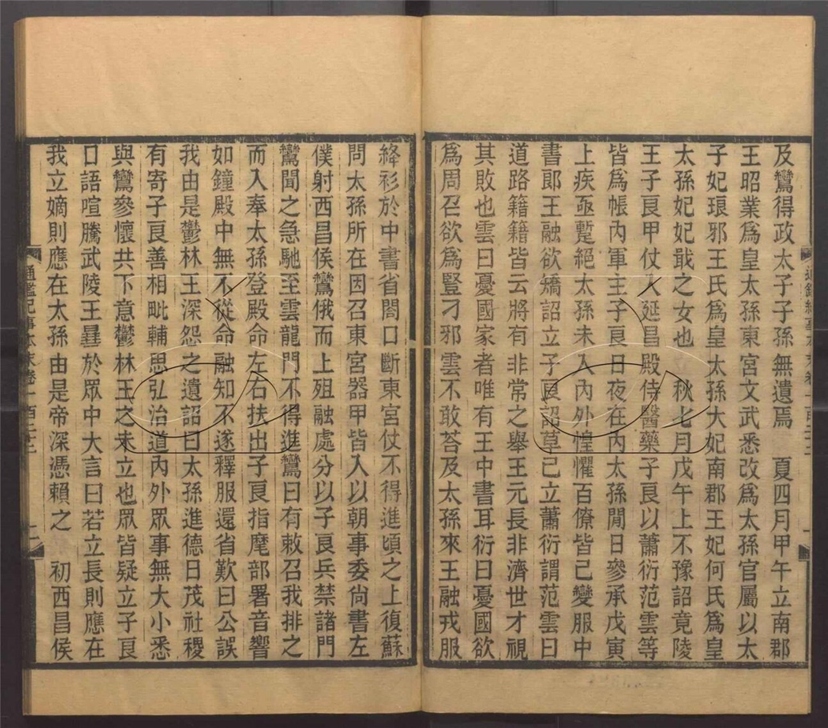 及鸞得政太子子孫無遺焉　夏四月甲午立南郡
王昭業爲皇太孫東宮文武悉改爲太孫官屬以太
子妃琅邪王氏爲皇太孫太妃南郡王妃何氏爲皇
太孫妃妃戢之女也　秋七月戊午上不豫詔竟陵
王子良甲仗入延昌殿侍醫藥子良以蕭衍范雲等
皆爲帳內軍主子良日夜在內太孫閒日參承戊寅
上疾亟蹔絕太孫未入內外惶懼百僚皆已變服中
書郎王融欲矯詔立子良詔草已立蕭衍謂范雲曰
道路籍籍皆云將有非常之舉王元長非濟世才視
其敗也雲曰憂國家者唯有王中書耳衍曰憂國欲
爲周召欲爲豎刁邪雲不敢荅及太孫來王融戎服
絳衫於中書省閤口斷東宮仗不得進頃之上復蘇
問太孫所在因召東宮器甲皆入以朝事委尚書左
僕射西昌侯鸞俄而上殂融處分以子良兵禁諸門
鸞聞之急馳至雲龍門不得進鸞曰有敕召我排之
而入奉太孫登殿命左右扶出子良指麾部署音響
如鐘殿中無不從命融知不遂釋服還省歎曰公誤
我由是鬱林王深怨之遺詔曰太孫進德日茂社稷
有寄子良善相毗輔思弘治道內外眾事無大小悉
與鸞參懷共下意鬱林王之未立也眾皆疑立子良
口語喧騰武陵王曅於眾中大言曰若立長則應在
我立嫡則應在太孫由是帝深憑賴之　初西昌侯
通鑑紀事本末卷一百二十二